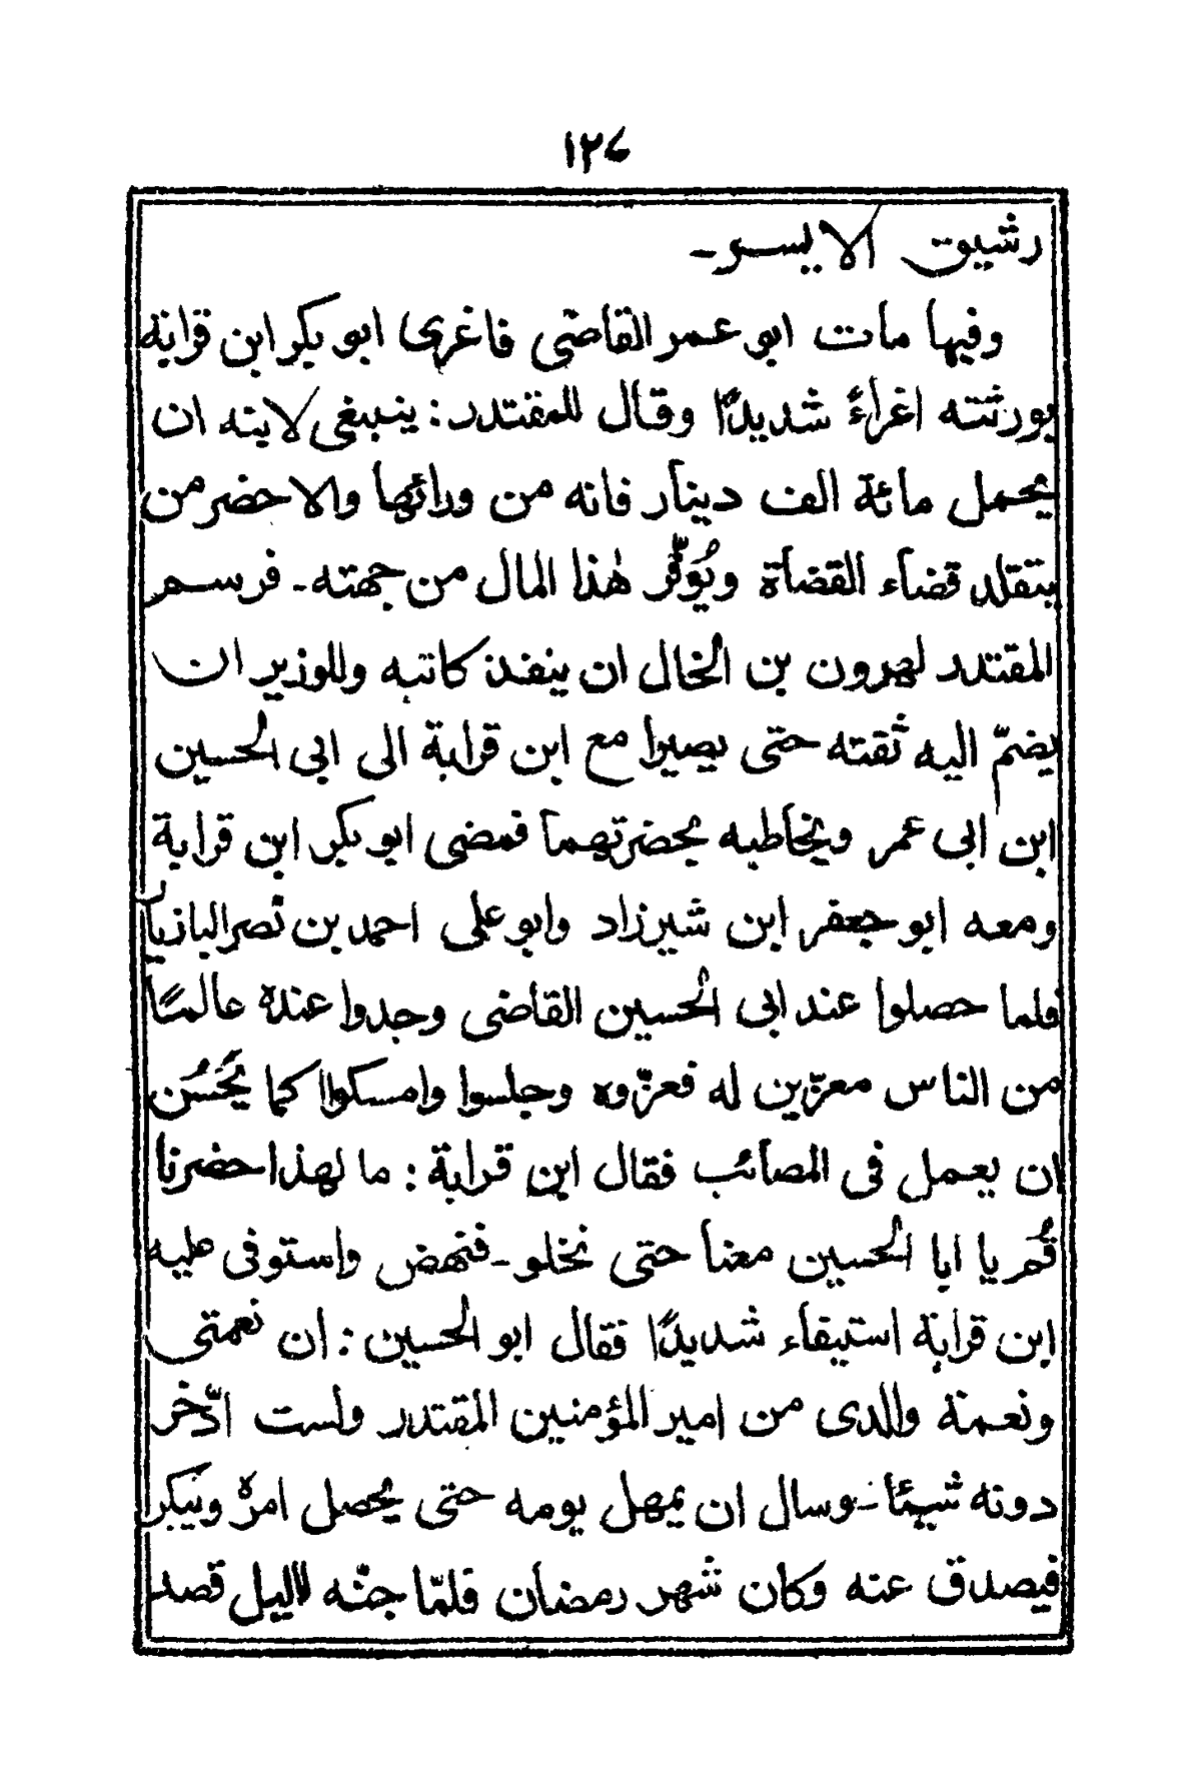 ١٢٧
رشيق الايسر ـ
وفيها مات ابو عمر القاضى فاغرى ابو بكر ابن قرابة
بورثته اغراءً شديدًا وقال للمقتدر : ينبغى لابنه ان
يحمل مائة الف دينار فانه من ورائها والا حضر من
يتقلد قضاء القضاة ويُوَفِّر هٰذا المال من جهته ـ فرسم
المقتدر لهرون بن الخال ان ينفذ كاتبه وللوزير ان
يضمّ اليه ثقته حتى يصيرا مع ابن قرابة الى ابى الحسين
ابن ابى عمر ويخاطبه بحضرتهما فمضى ابو بكر ابن قرابة
ومعه ابو جعفر ابن شيرزاد وابو على احمد بن نصر البازيار
فلما حصلوا عند ابى الحسين القاضى وجدوا عنده عالمًا
من الناس معزّين له فعزّوه وجلسوا وامسكوا كما يَحْسُن
ان يعمل فى المصائب فقال ابن قرابة : ما لهذا حضرنا
قُم يا ابا الحسين معنا حتى نخلو ـ فنهض واستوفى عليه
ابن قرابة استيفاء شديدًا فقال ابو الحسين : ان نعمتى
ونعمة والدى من امير المؤمنين المقتدر ولست ادّخر
دونه شيئا ـ وسال ان يمهل يومه حتى يحصل امره ويبكر
فيصدق عنه وكان شهر رمضان فلمّا جنّه الليل قصد